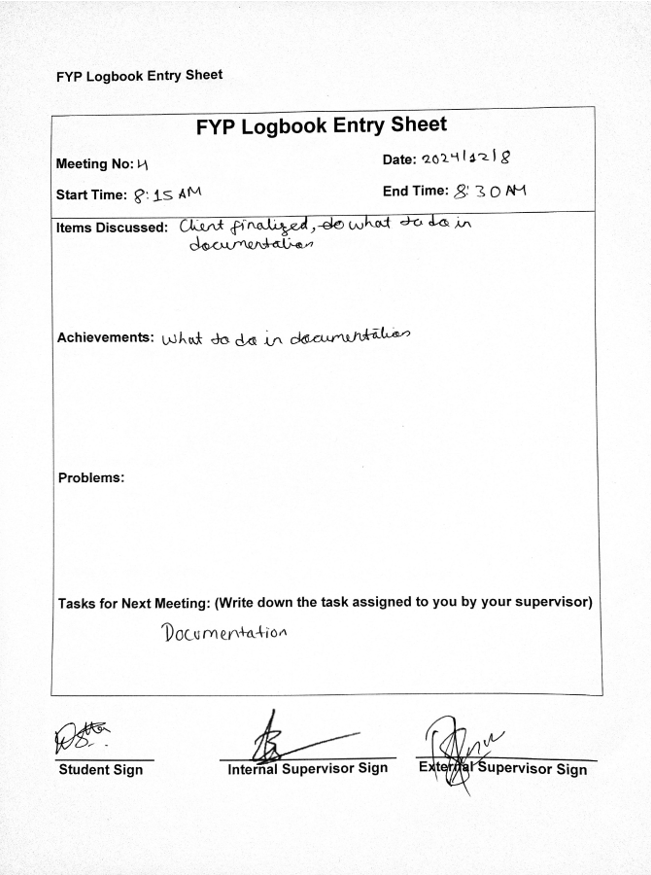 FYP Logbook Entry Sheet
FYP Logbook Entry Sheet
Meeting No: 4
Date: 2024/12/8
Start Time: 8:15 AM
End Time: 8:30 AM
Items Discussed: Client finalized, what to do in
documentation
Achievements: What to do in documentation
Problems:
Tasks for Next Meeting: (Write down the task assigned to you by your supervisor)
Documentation
Student Sign
Internal Supervisor Sign
External Supervisor Sign